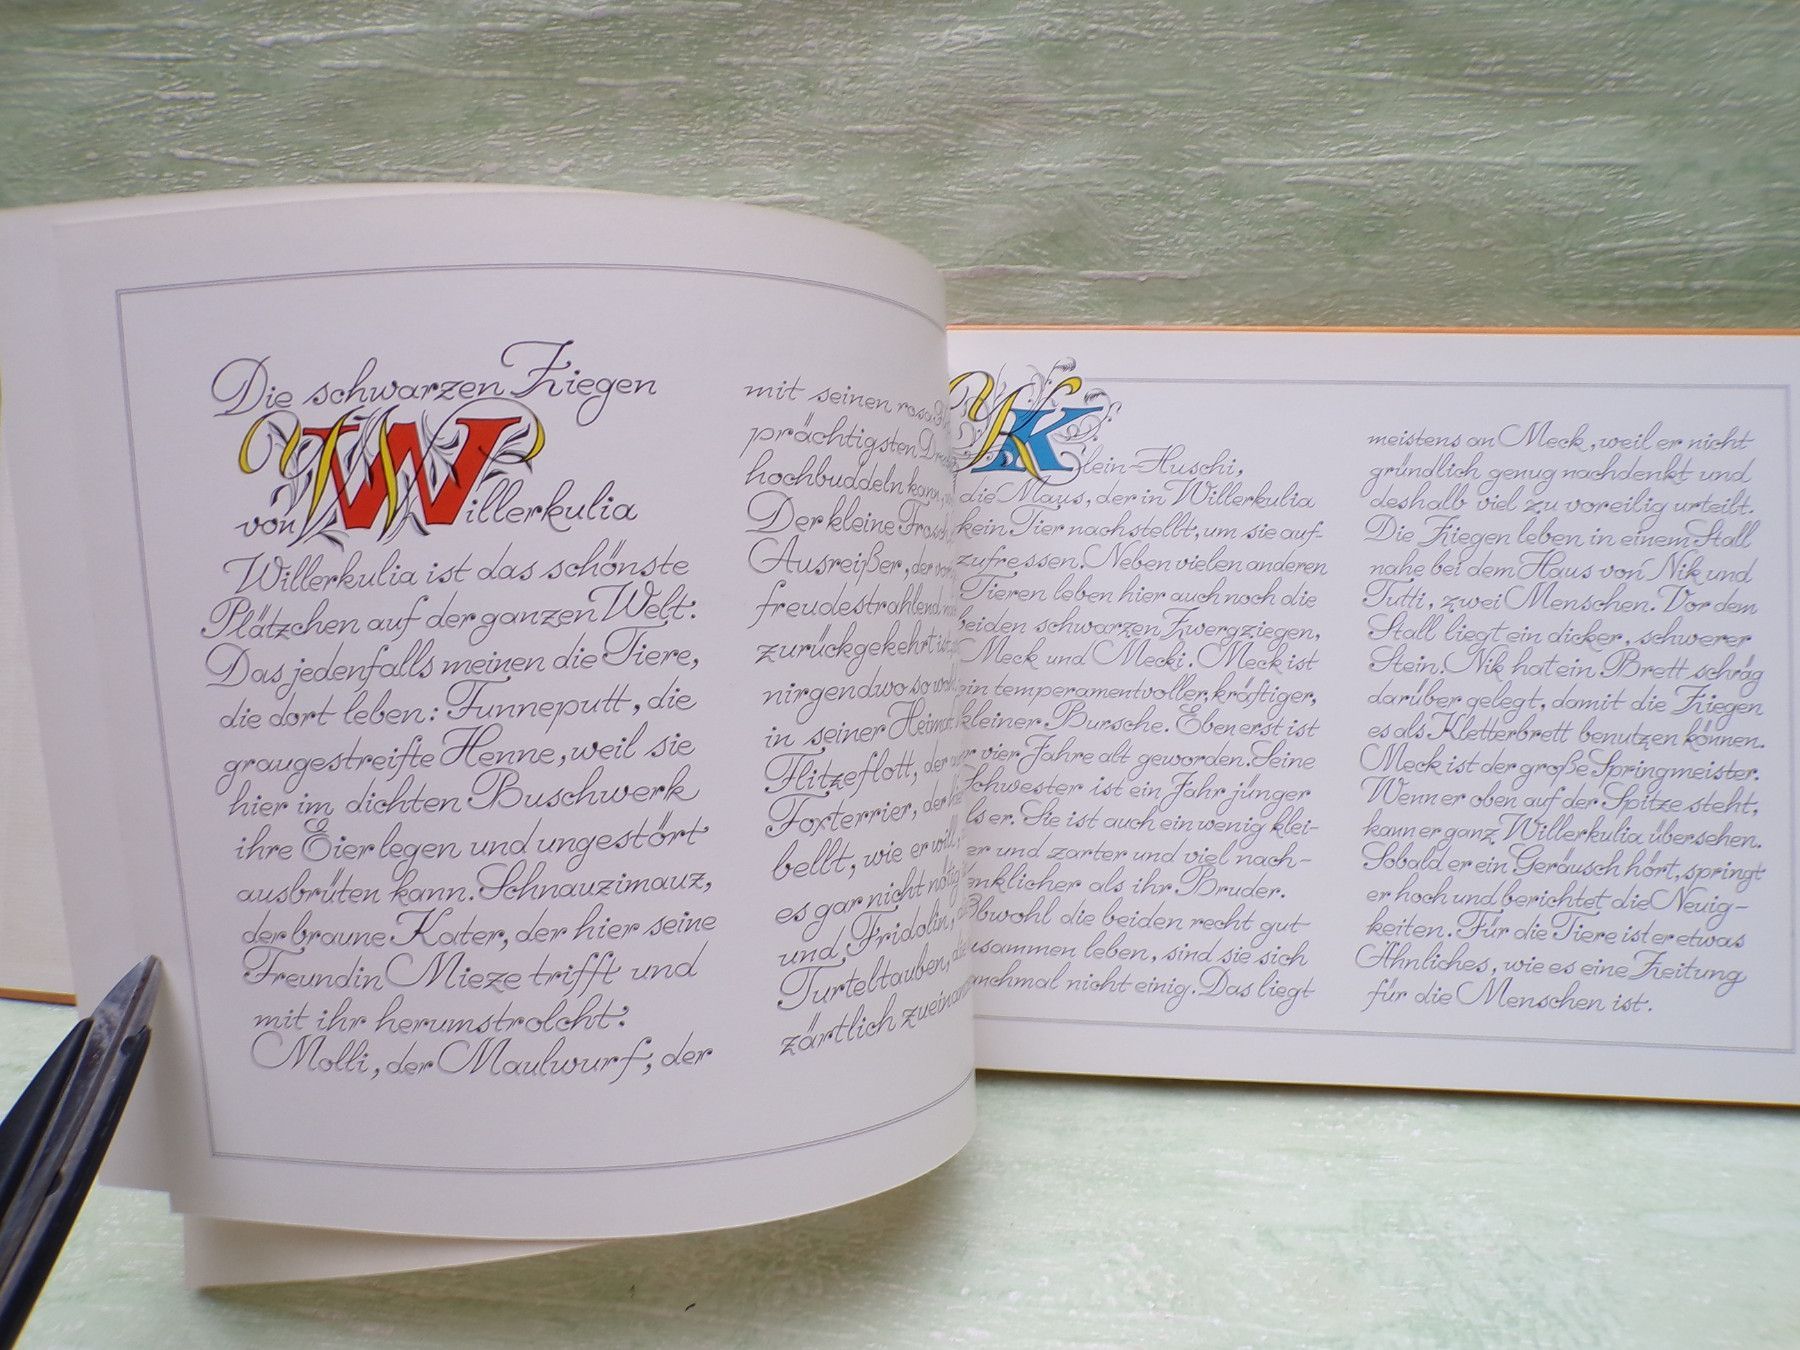 Die schwarzen Ziegen
von Willerkulia
Willerkulia ist das schönste
Plätzchen auf der ganzen Welt.
Das jedenfalls meinen die Tiere,
die dort leben: Tunneputt, die
graugestreifte Henne, weil sie
hier im dichten Buschwerk
ihre Eier legen und ungestört
ausbrüten kann. Schnauzimauz,
der braune Kater, der hier seine
Freundin Mieze trifft und
mit ihr herumstrolcht.
Molli, der Maulwurf, der
mit seinen
prächtigsten
hochbuddeln kann,
Der kleine Frosch
Ausreißer, der
freudestrahlend
zurückgekehrt ist,
nirgendwo so
in seiner Heimat
Flitzeflott, der
Foxterrier, der
bellt, wie er will,
es gar nicht nötig
und Fridolin,
Turteltauben,
zärtlich
Klein-Huschi,
die Maus, der in Willerkulia
kein Tier nachstellt, um sie auf-
zufressen. Neben vielen anderen
Tieren leben hier auch noch die
beiden schwarzen Zwergziegen,
Meck und Mecki. Meck ist
ein temperamentvoller, kräftiger,
kleiner Bursche. Eben erst ist
er vier Jahre alt geworden. Seine
Schwester ist ein Jahr jünger
als er. Sie ist auch ein wenig klei-
ner und zarter und viel nach-
denklicher als ihr Bruder.
Obwohl die beiden recht gut
zusammen leben, sind sie sich
manchmal nicht einig. Das liegt
meistens an Meck, weil er nicht
gründlich genug nachdenkt und
deshalb viel zu voreilig urteilt.
Die Ziegen leben in einem Stall
nahe bei dem Haus von Nik und
Tutti, zwei Menschen. Vor dem
Stall liegt ein dicker, schwerer
Stein. Nik hat ein Brett schräg
darüber gelegt, damit die Ziegen
es als Kletterbrett benutzen können.
Meck ist der große Springmeister.
Wenn er oben auf der Spitze steht,
kann er ganz Willerkulia übersehen.
Sobald er ein Geräusch hört, springt
er hoch und berichtet die Neuig-
keiten. Für die Tiere ist er etwas
Ähnliches, wie es eine Zeitung
für die Menschen ist.